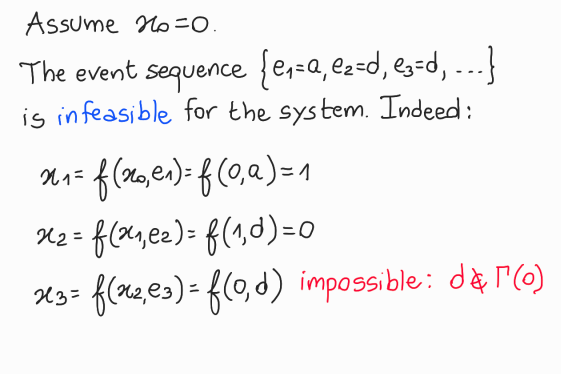 Assume x₀=0.
The event sequence {e₁=a, e₂=d, e₃=d, ...}
is infeasible for the system. Indeed:
x₁= f(x₀,e₁)= f(0,a)=1
x₂= f(x₁,e₂)= f(1,d)=0
x₃= f(x₂,e₃)= f(0,d) impossible: d∉Γ(0)